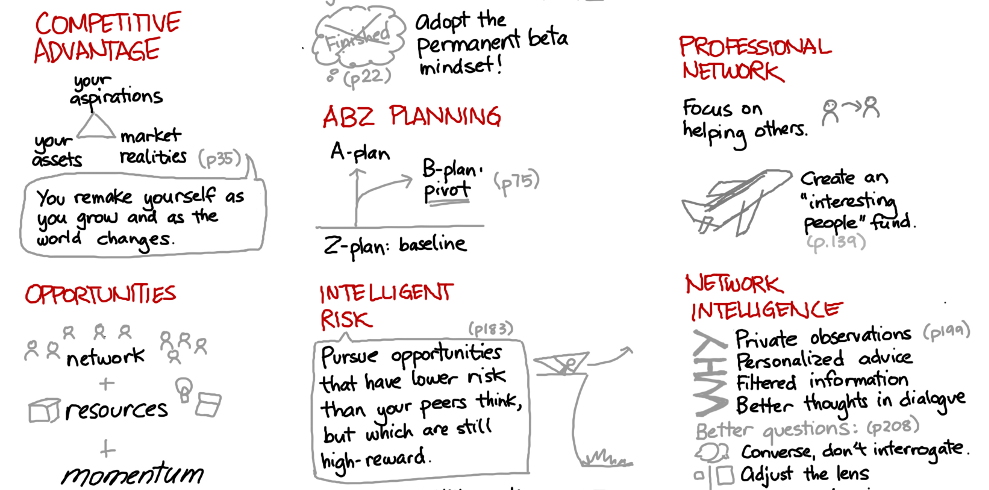 COMPETITIVE
ADVANTAGE
your
aspirations
your
assets
market
realities (p35)
You remake yourself as
you grow and as the
world changes.
OPPORTUNITIES
network
+
resources
+
momentum
Finished
(p22)
Adopt the
permanent beta
mindset!
ABZ PLANNING
A-plan
B-plan:
pivot
(p75)
Z-plan: baseline
INTELLIGENT
RISK
(p183)
Pursue opportunities
that have lower risk
than your peers think,
but which are still
high-reward.
PROFESSIONAL
NETWORK
Focus on
helping others.
Create an
"interesting
people" fund.
(p.139)
NETWORK
INTELLIGENCE
WHY
Private observations (p199)
Personalized advice
Filtered information
Better thoughts in dialogue
Better questions: (p208)
Converse, don't interrogate.
Adjust the lens